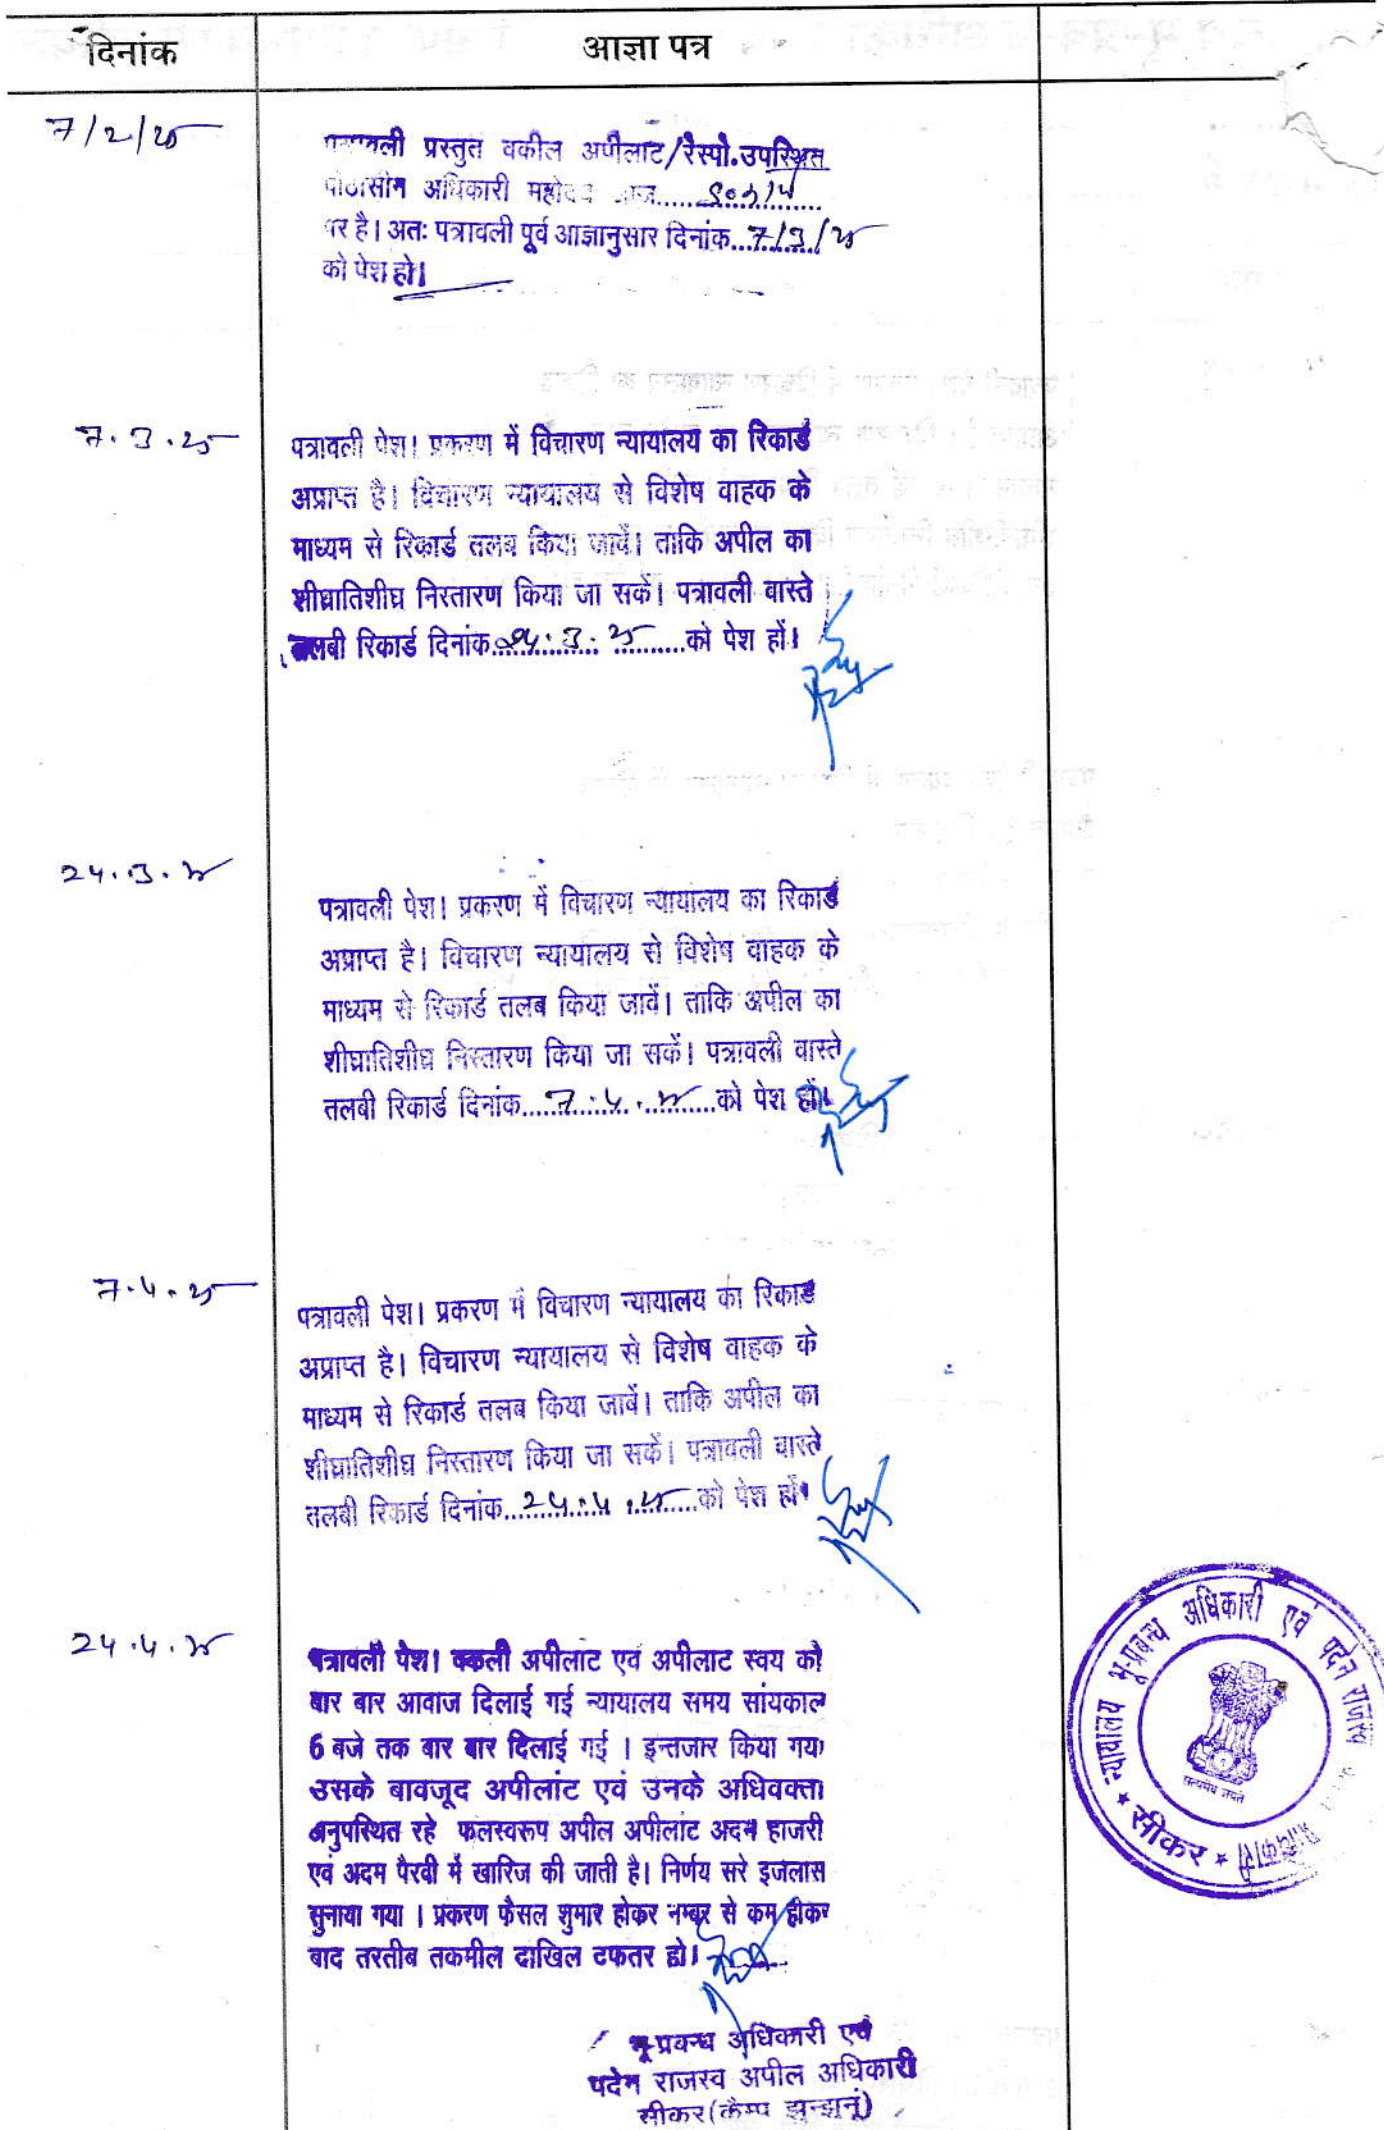 दिनांक
आज्ञा पत्र
7/2/25
पत्रावली प्रस्तुत वकील अपीलाट/रैस्पो.उपस्थित
पीठासीन अधिकारी महोदय आज....................
पर है। अतः पत्रावली पूर्व आज्ञानुसार दिनांक...7/3/25
को पेश हो।
7.3.25
पत्रावली पेश। प्रकरण में विचारण न्यायालय का रिकार्ड
अप्राप्त है। विचारण न्यायालय से विशेष वाहक के
माध्यम से रिकार्ड तलब किया जावें। ताकि अपील का
शीघ्रातिशीघ्र निस्तारण किया जा सकें। पत्रावली वास्ते
तलबी रिकार्ड दिनांक 24.3.25 को पेश हों।
24.3.25
पत्रावली पेश। प्रकरण में विचारण न्यायालय का रिकार्ड
अप्राप्त है। विचारण न्यायालय से विशेष वाहक के
माध्यम से रिकार्ड तलब किया जावें। ताकि अपील का
शीघ्रातिशीघ्र निस्तारण किया जा सकें। पत्रावली वास्ते
तलबी रिकार्ड दिनांक 7.4.25 को पेश हों।
7.4.25
पत्रावली पेश। प्रकरण में विचारण न्यायालय का रिकार्ड
अप्राप्त है। विचारण न्यायालय से विशेष वाहक के
माध्यम से रिकार्ड तलब किया जावें। ताकि अपील का
शीघ्रातिशीघ्र निस्तारण किया जा सकें। पत्रावली वास्ते
तलबी रिकार्ड दिनांक 24.4.25 को पेश हों।
24.4.25
पत्रावली पेश। वकली अपीलाट एवं अपीलाट स्वय को
बार बार आवाज दिलाई गई न्यायालय समय सांयकाल
6 बजे तक बार बार दिलाई गई । इन्तजार किया गया
उसके बावजूद अपीलांट एवं उनके अधिवक्ता
अनुपस्थित रहे फलस्वरूप अपील अपीलांट अदम हाजरी
एवं अदम पैरवी में खारिज की जाती है। निर्णय सरे इजलास
सुनाया गया । प्रकरण फैसल शुमार होकर नम्बर से कम होकर
बाद तरतीब तकमील दाखिल दफतर हो।
भू-प्रबन्ध अधिकारी एवं
पदेन राजस्व अपील अधिकारी
सीकर(कैम्प झुन्झुनूं)
न्यायालय भू-प्रबन्ध अधिकारी एवं पदेन राजस्व
सत्यमेव जयते
★ सीकर ★